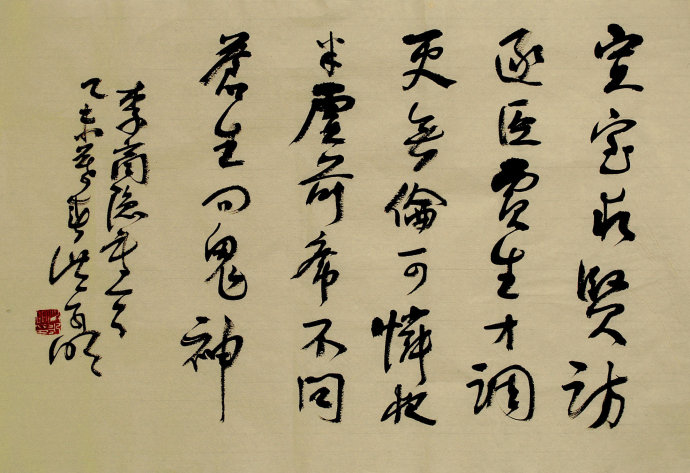 宣室求賢訪
逐臣賈生才調
更無倫可憐夜
半虛前席不問
蒼生問鬼神
李商隐
乙未暮春洪